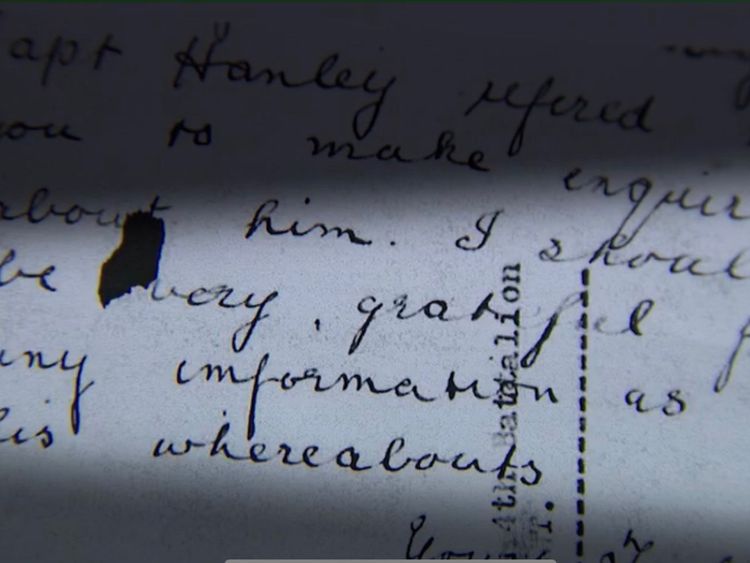 apt Hanley refered
you to make enquir
about him. I shoul
be very, grateful f
any information as
his whereabouts
4th Battalion